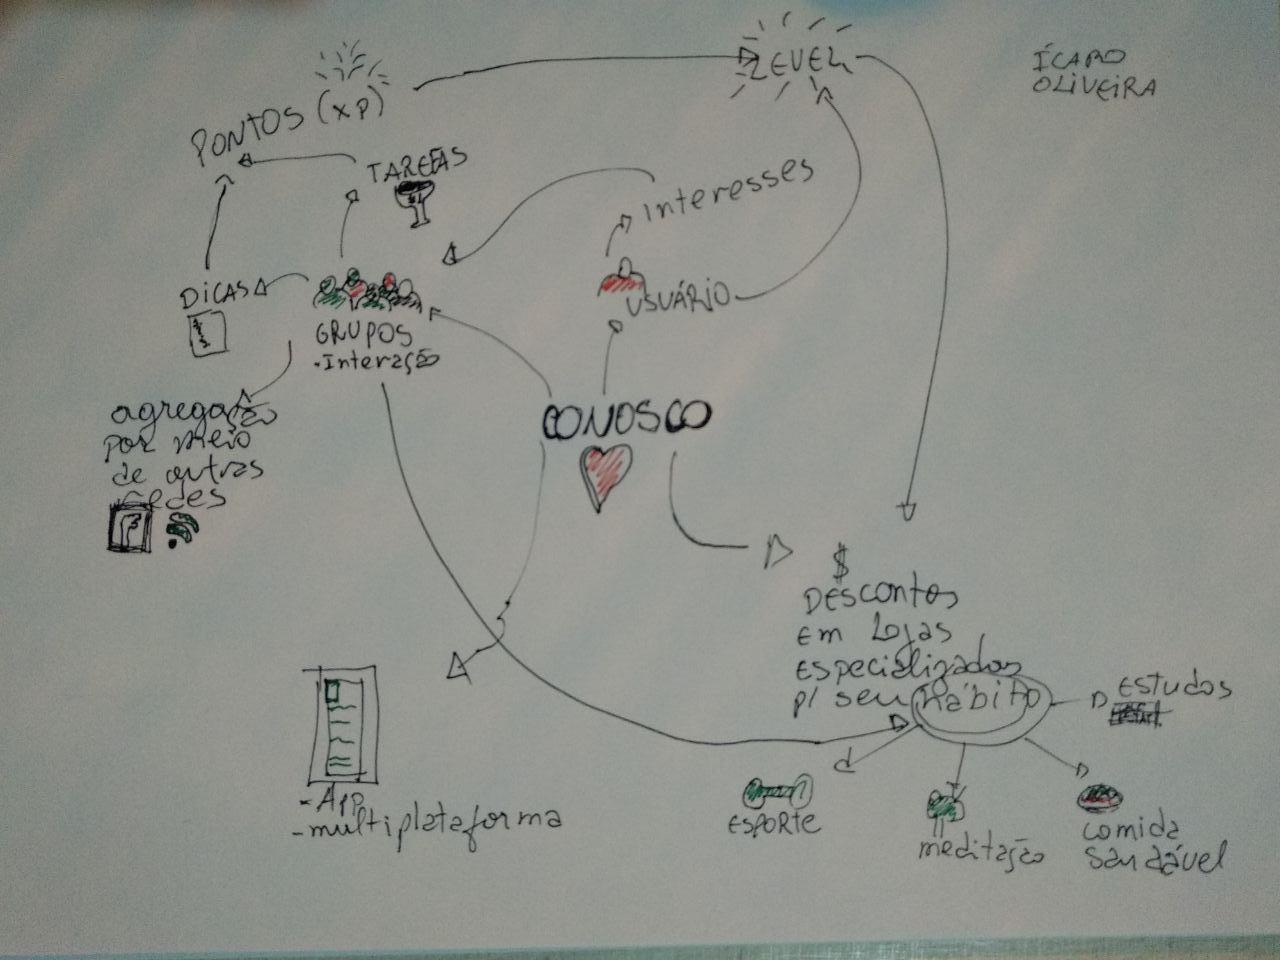 LEVEL
ÍCARO
OLIVEIRA
PONTOS (XP)
TAREFAS
Interesses
DICAS
USUÁRIO
GRUPOS
• Interação
CONOSCO
agregação
por meio
de outras
redes
$
DESCONTOS
Em Lojas
Especializadas
p/ seu Hábito
Estudos
- App
- multiplataforma
ESPORTE
meditação
comida
saudável